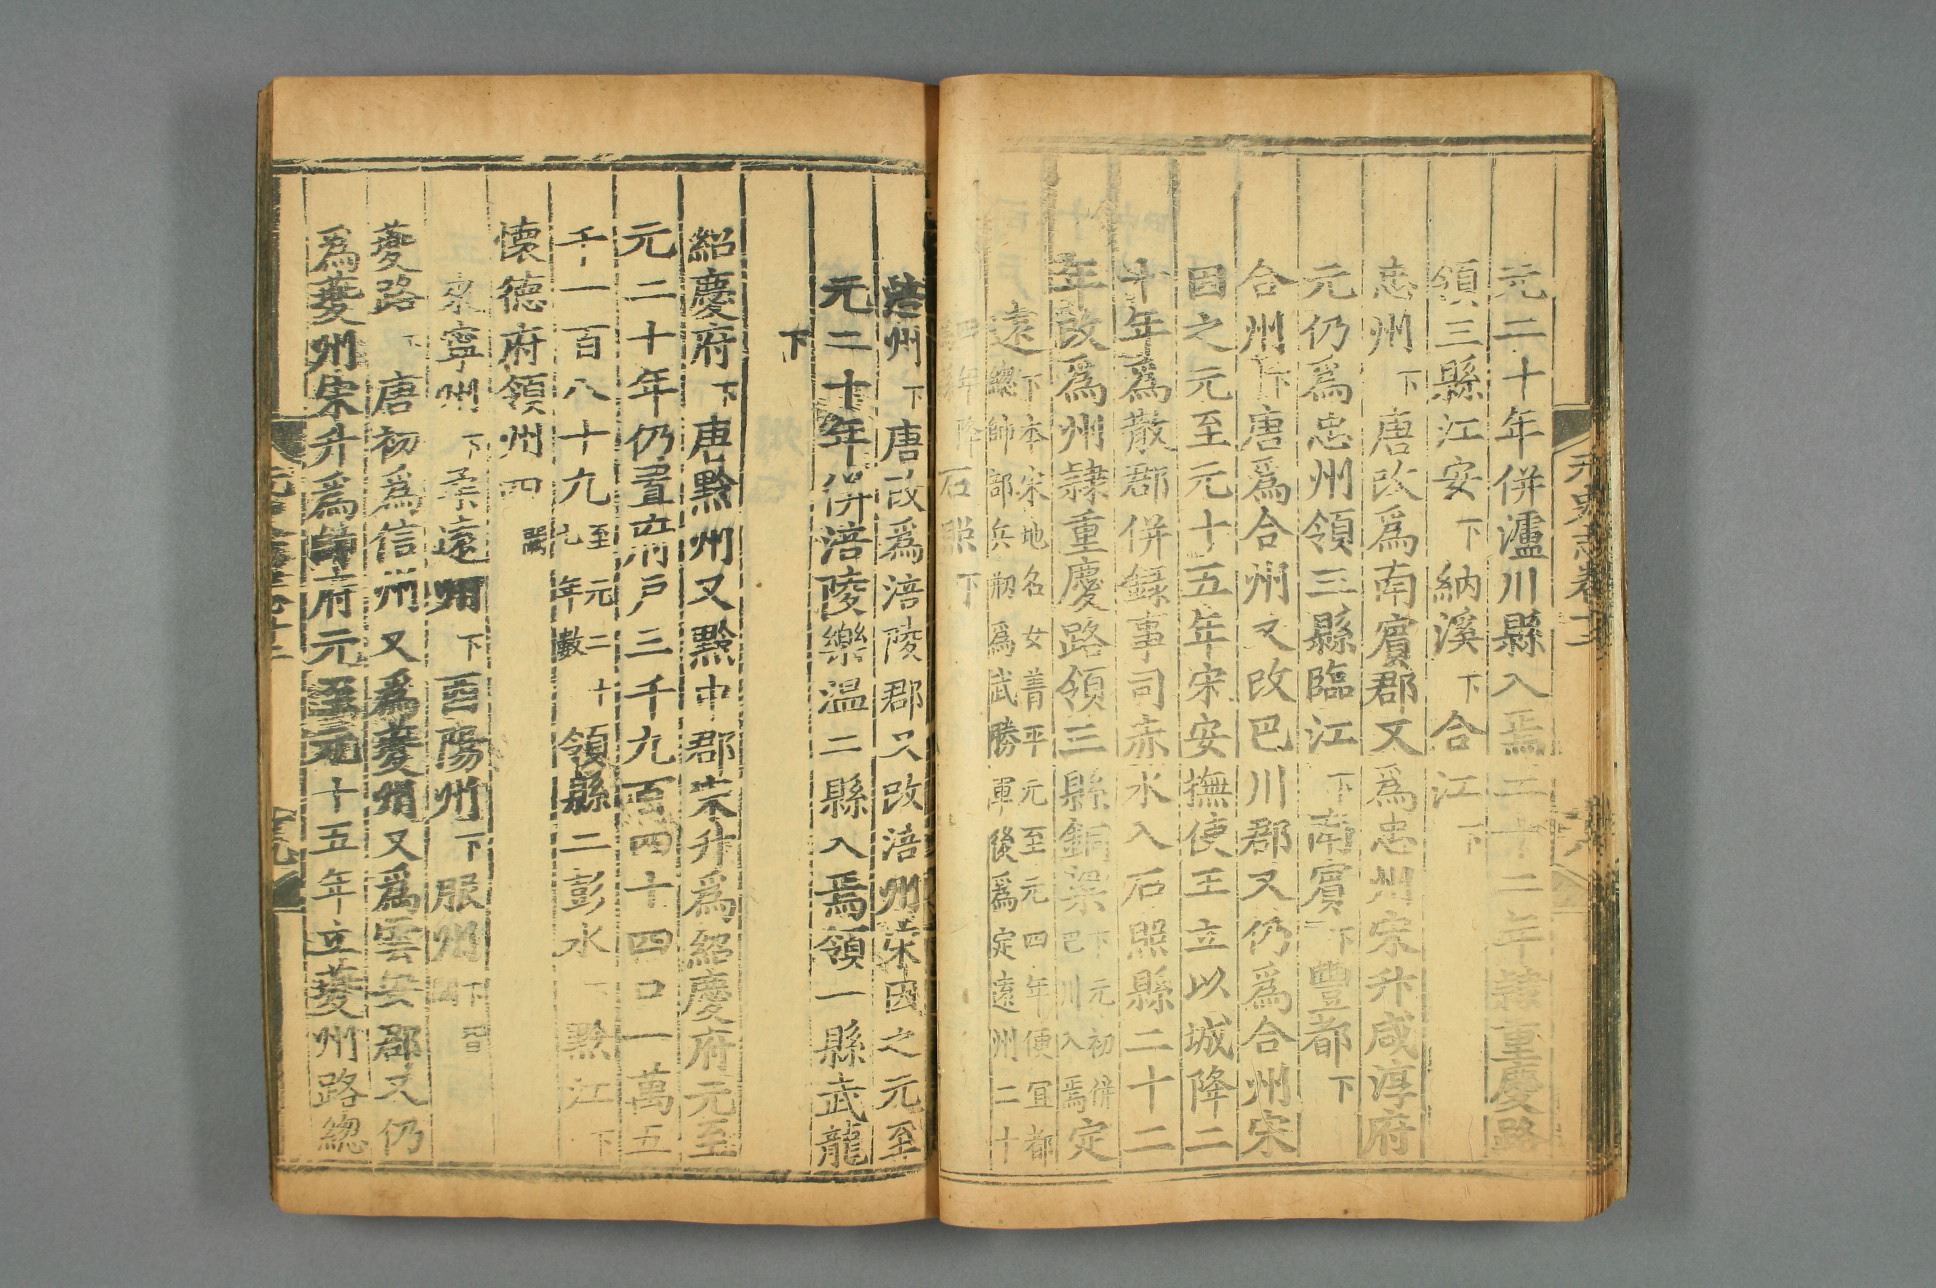 元二十年併瀘川縣入焉二十二年隸重慶路
領三縣江安下納溪下合江下
忠州下唐改爲南賓郡又爲忠州宋升咸淳府
元仍爲忠州領三縣臨江下南賓下豐都下
合州下唐爲合州又改巴川郡又仍爲合州宋
因之元至元十五年宋安撫使王立以城降二
十年爲散郡併錄事司赤水入石照縣二十二
年改爲州隸重慶路領三縣銅梁下元初併巴川入焉定
遠下本宋地名女菁平元至元四年便宜都總帥部兵刱爲武勝軍後爲定遠州二十
四年降石照下
涪州下唐改爲涪陵郡又改涪州宋因之元至
元二十年併涪陵樂温二縣入焉領一縣武龍
下
紹慶府下唐黔州又黔中郡宋升爲紹慶府元至
元二十年仍置府戶三千九百四十四口一萬五
千一百八十九至元二十七年數領縣二彭水下黔江下
懷德府領州四闕
來寧州下柔遠州下酉陽州下服州下
夔路下唐初爲信州又爲夔州又爲雲安郡又仍
爲夔州宋升爲帥府元至元十五年立夔州路總